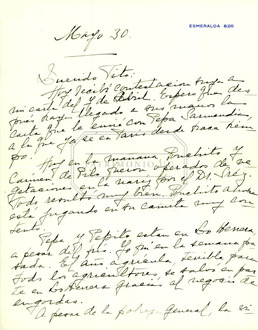 ESMERALDA 626
Mayo 30.
Querido Tito:
Hoy recibí contestación tuya a
mi carta del 9 de Abril. Espero que des
pués hay llegado a sus manos la
carta que le envié con Pepa
a la que ya se en Paris desde hace tiem
po.
Hoy en la mañana Buchito y
Carmen de Pilo fueron operados de ve
getaciones en la nariz por el Dr.
Todo resultó muy bien, Buchito ahora
está jugando en su camita muy con
tento.
Pepe y Pepito están en Lo Herrera
a pesar del frío. Yo fui en la semana pa
sada. El año agrícola, terrible para
todos los agricultores, se salvó en par
te en Lo Herrera gracias al negocio de
engordas.
A pesar de la pobreza general, la vi